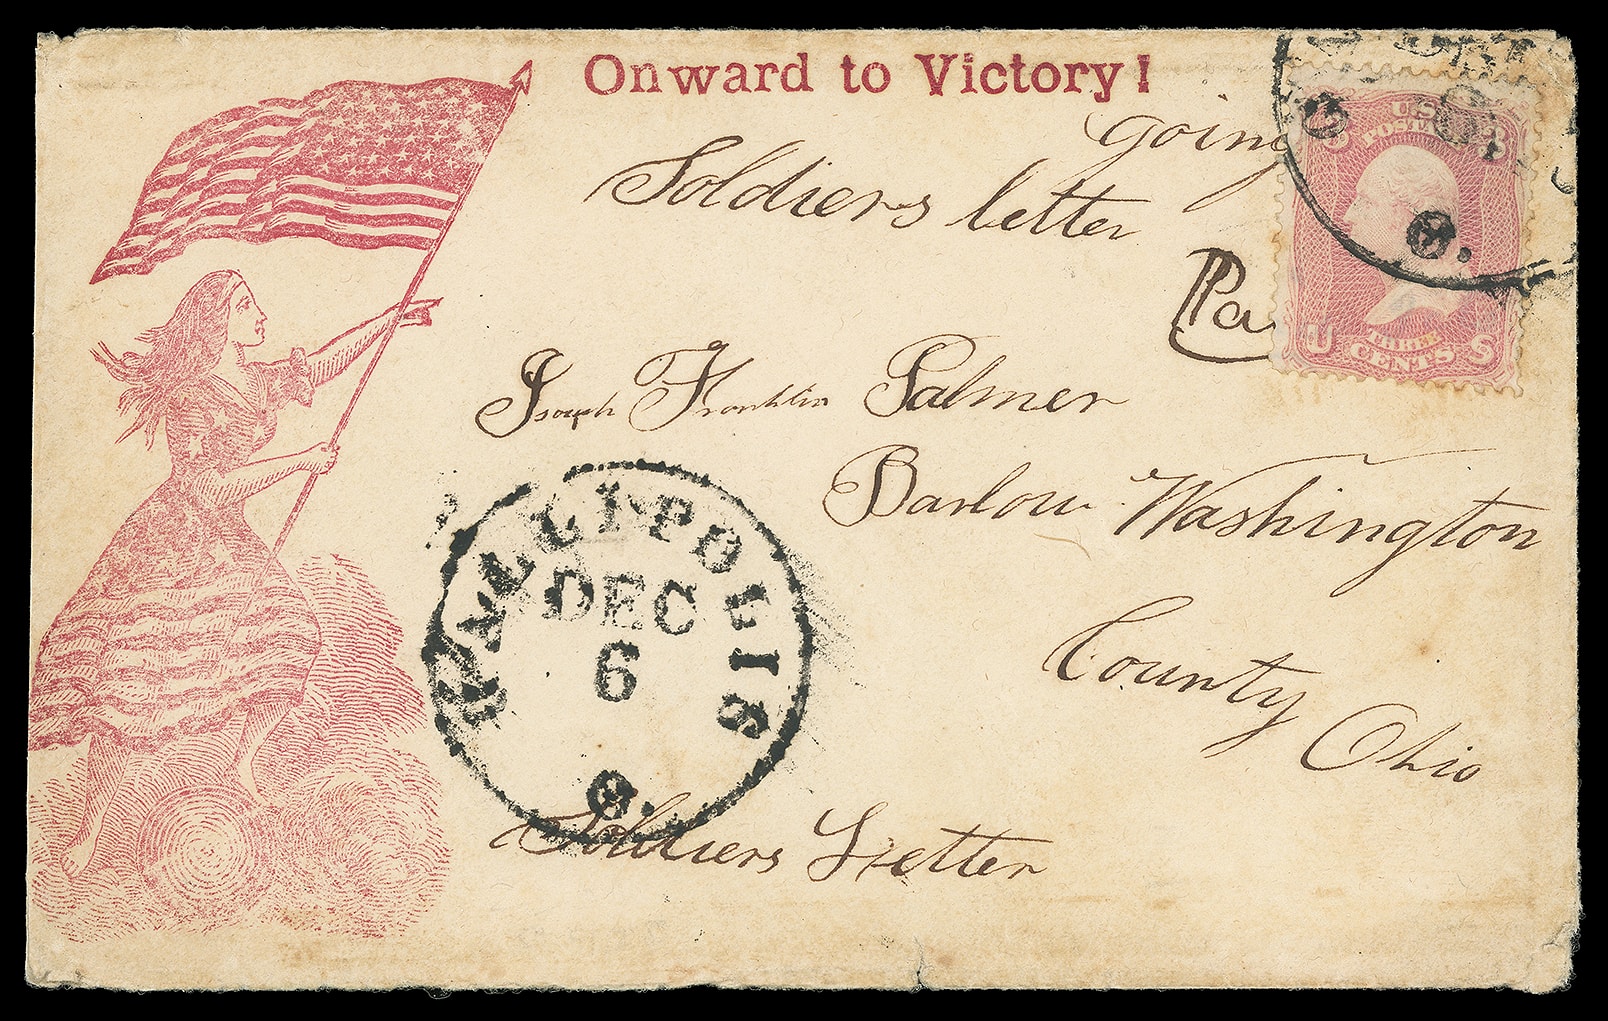 Onward to Victory!
going
Soldiers letter
Pa
Joseph Franklin Palmer
Barlow Washington
County
Ohio
Soldiers Letter
GALLIPOLIS
DEC
6
O.
O.
3 U.S. 3
POSTAGE
U S
THREE
CENTS